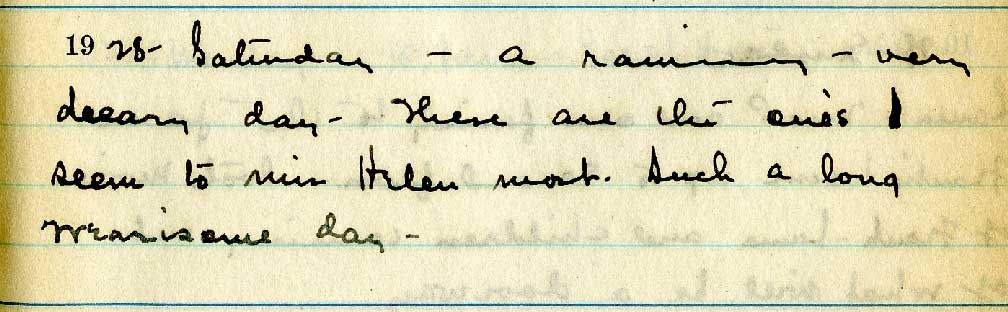 1928 Saturday - A rainy - very
dreary day - These are the ones I
seem to miss Helen most. Such a long
wearisome day -